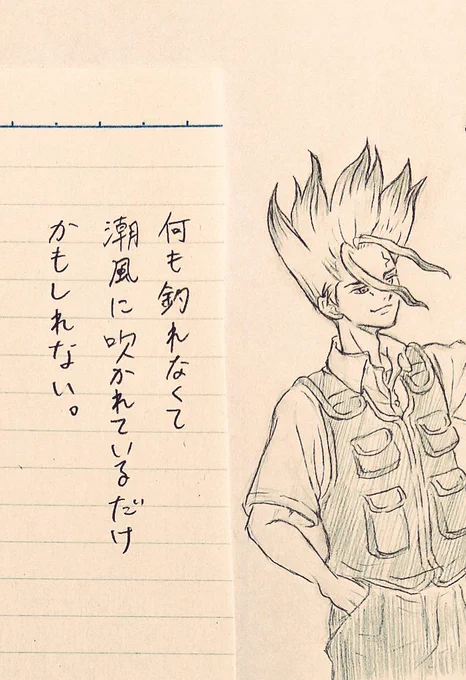 何も釣れなくて
潮風に吹かれているだけ
かもしれない。